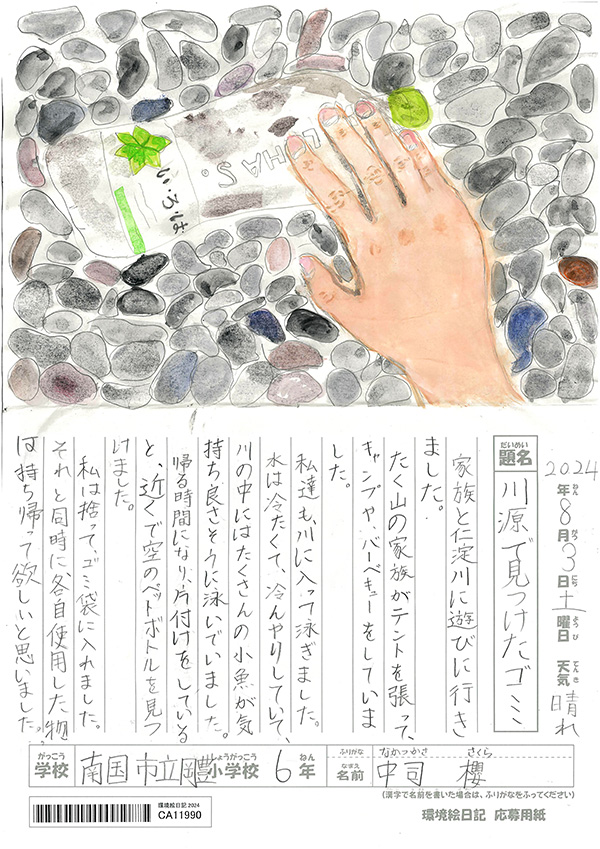 I LOHAS
い・ろ・は・す
2024年8月3日土曜日 天気 晴れ
ねん がつ にち ようび てんき
だいめい
題名 川原で見つけたゴミ
家族と仁淀川に遊びに行き
ました。
たく山の家族がテントを張って、
キャンプや、バーベキューをしていま
した。
私達も、川に入って泳ぎました。
水は冷たくて、冷んやりしていて、
川の中にはたくさんの小魚が気
持ち良さそうに泳いでいました。
帰る時間になり、片付けをしている
と、近くで空のペットボトルを見つ
けました。
私は捨って、ゴミ袋に入れました。
それと同時に、各自使用した物
は持ち帰って欲しいと思いました。
がっこう しょうがっこう ねん
学校 南国市立岡豊小学校 6年
ふりがな なかつかさ さくら
なまえ
名前 中司 櫻
(漢字で名前を書いた場合は、ふりがなをふってください)
環境絵日記 応募用紙
環境絵日記 2024
CA11990